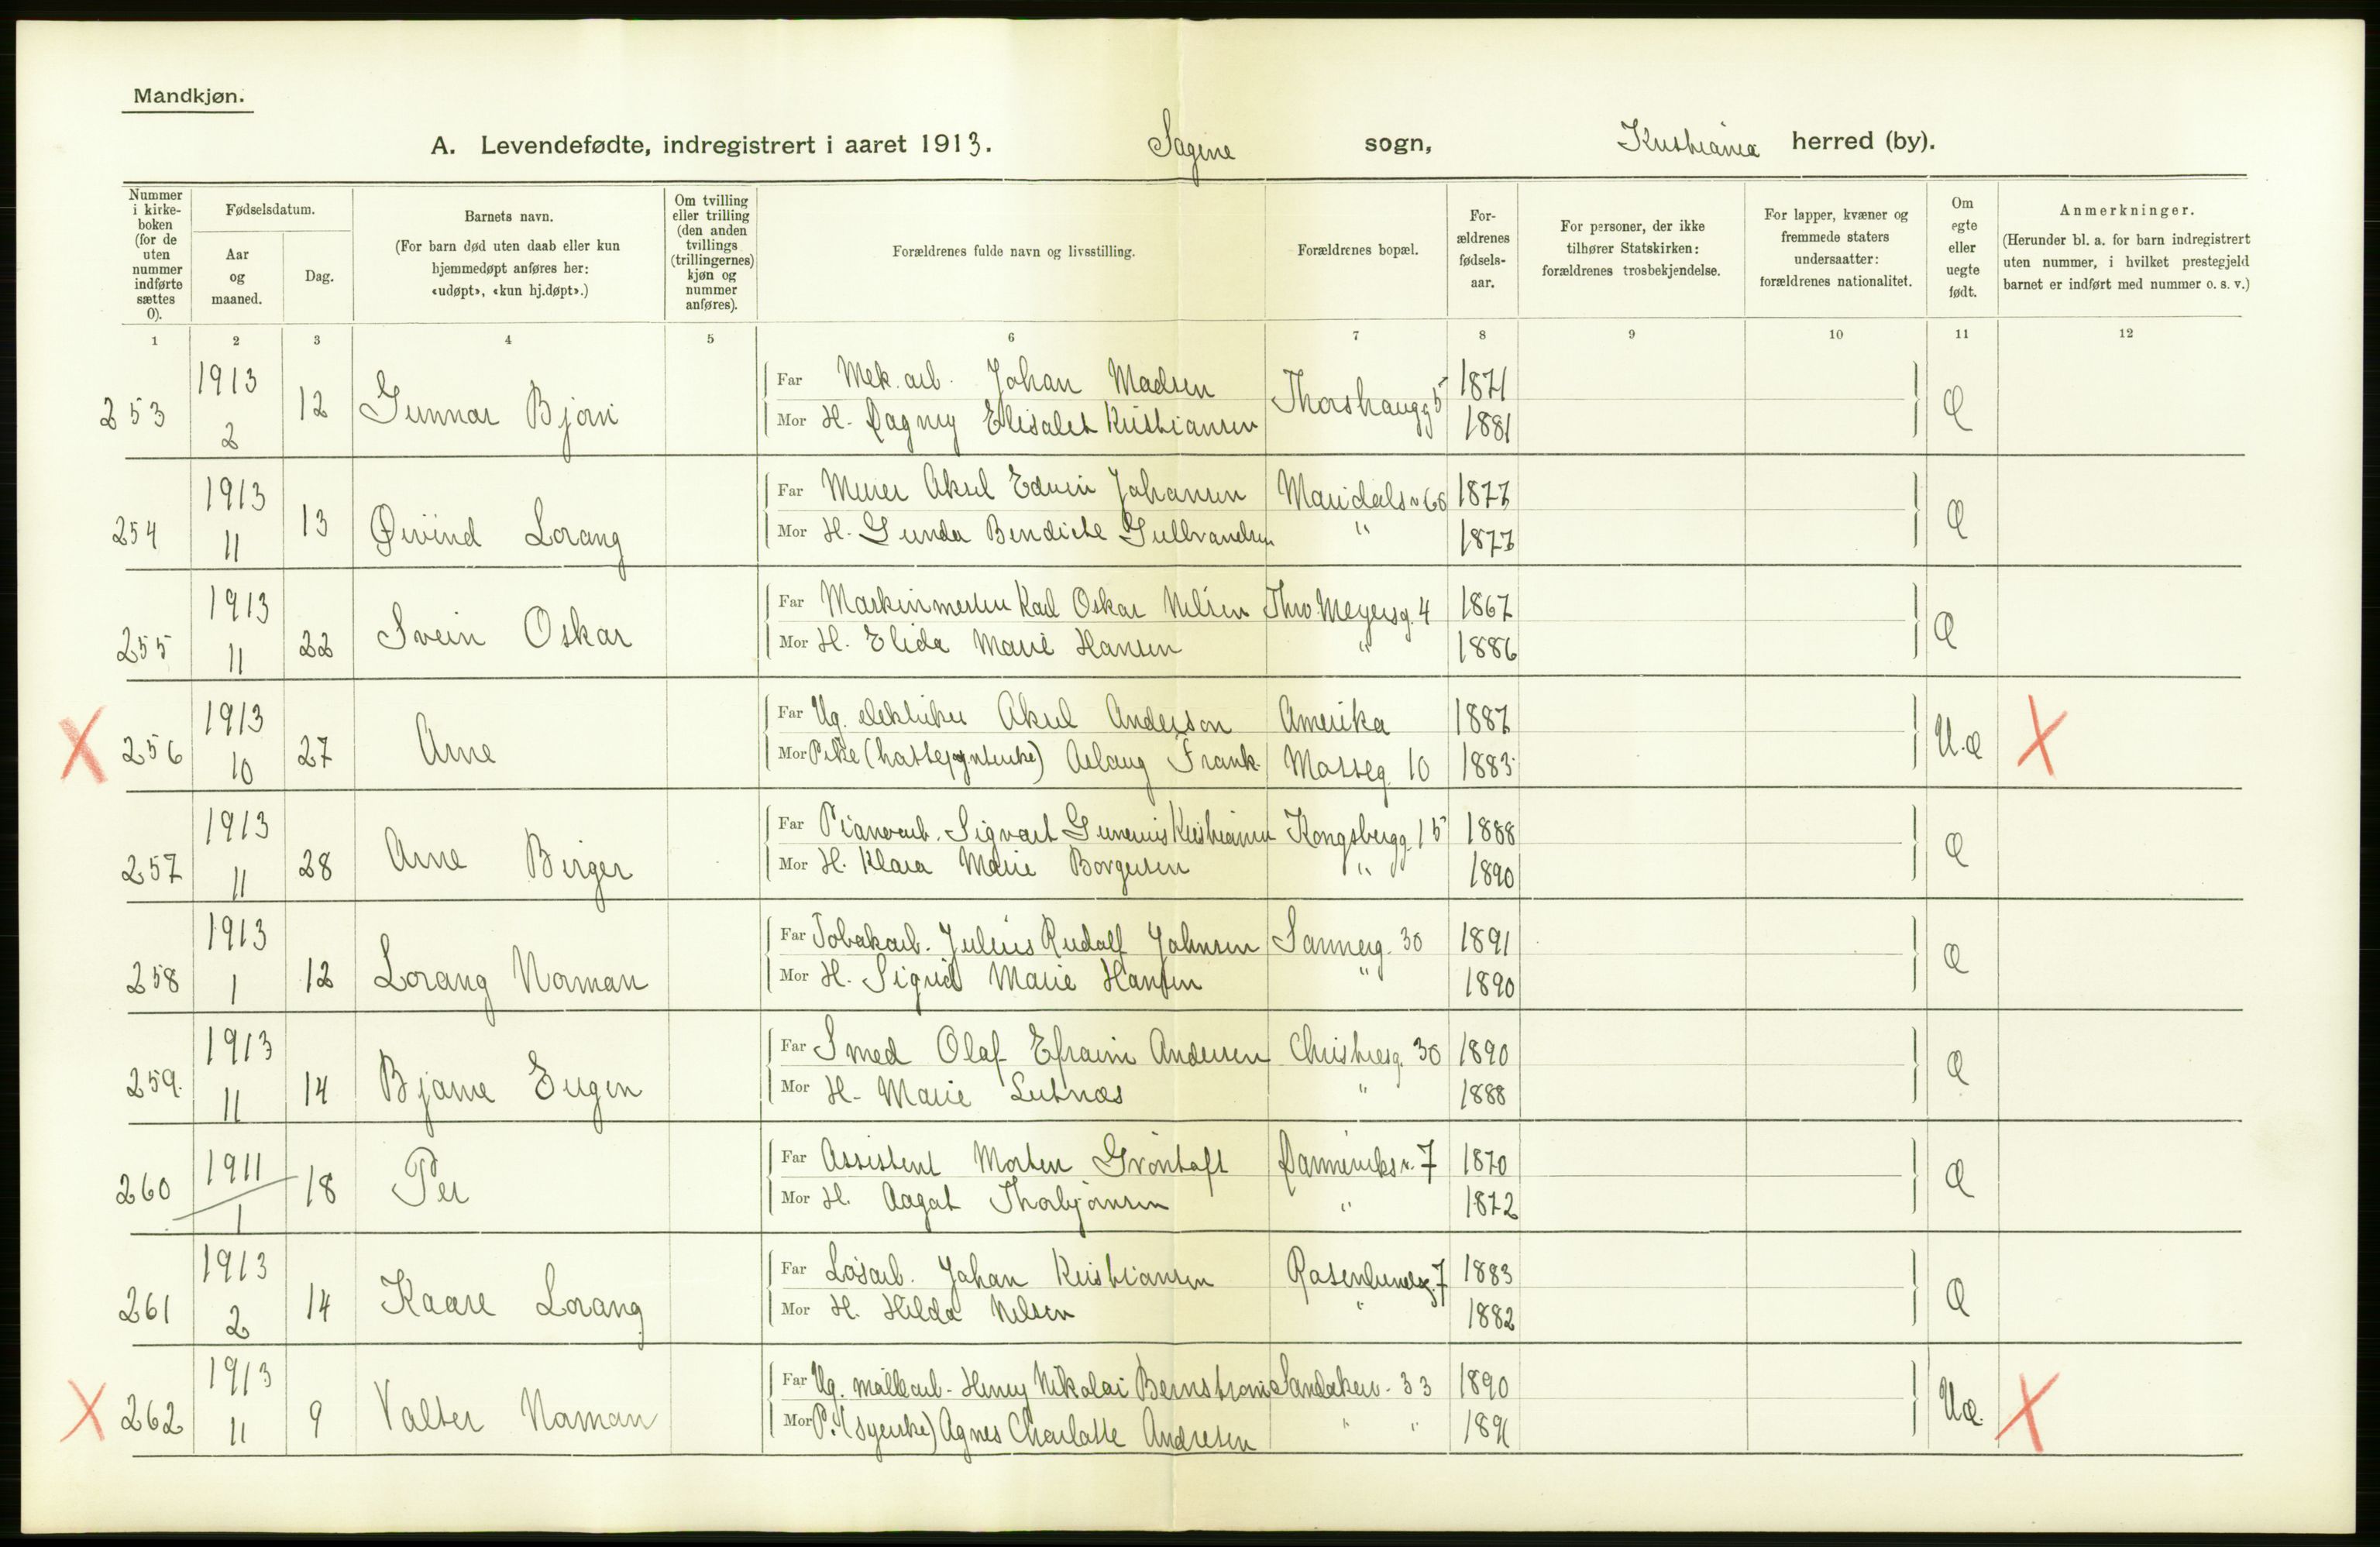 Mandkjøn.
A. Levendefødte, indregistrert i aaret 1913. Sagene sogn, Kristiania herred (by).
Nummer i kirke-boken (for de uten nummer indførte sættes 0).
Fødselsdatum.
Aar og maaned.
Dag.
Barnets navn.
(For barn død uten daab eller kun hjemmedøpt anføres her: «udøpt», «kun hj.døpt».)
Om tvilling eller trilling (den anden tvillings (trillingernes) kjøn og nummer anføres).
Forældrenes fulde navn og livsstilling.
Forældrenes bopæl.
For-ældrenes fødsels-aar.
For personer, der ikke tilhører Statskirken: forældrenes trosbekjendelse.
For lapper, kvæner og fremmede staters undersaatter: forældrenes nationalitet.
Om egte eller uegte født.
Anmerkninger.
(Herunder bl. a. for barn indregistrert uten nummer, i hvilket prestegjeld barnet er indført med nummer o. s. v.)
1 2 3 4 5 6 7 8 9 10 11 12
253 1913 2 12 Gunnar Bjørn Æ
Far Mek. arb. Johan Madsen Thorshaugg 5 1871
Mor H. Dagny Elisabet Kristiansen 1881
254 1913 11 13 Øivind Lorang Æ
Far Murer Aksel Edvin Johansen Maridalsv 66 1877
Mor H. Gunda Bendicte Gulbrandsen " 1877
255 1913 11 22 Svein Oskar Æ
Far Maskinmester Karl Oskar Nilsen Thv. Meyersg. 4 1867
Mor H. Elida Marie Hansen " 1886
X 256 1913 10 27 Arne U.æ X
Far Ug. elektriker Aksel Anderson Amerika 1887
Mor Pike (hattepynterske) Aslaug Frank. Mosseg. 10 1883
257 1913 11 28 Arne Birger Æ
Far Pianoarb. Sigvart Gunerius Kristiansen Kongsbergg. 15 1888
Mor H. Klara Marie Borgersen " 1890
258 1913 1 12 Lorang Norman Æ
Far Tobakarb. Julius Rudolf Johnsen Sannerg. 30 1891
Mor H. Sigrid Marie Hansen " 1890
259. 1913 11 14 Bjarne Eugen Æ
Far Smed Olaf Efraim Andersen Christiesg. 30 1890
Mor H. Marie Lutnæs " 1888
260 1911 1 18 Per Æ
Far Assistent Morten Grøntoft Danneviksv. 7 1870
Mor H. Aagat Thorbjørnsen " 1872
261 1913 2 14 Kaare Lorang Æ
Far Løsarb. Johan Kristiansen Rosenlundg. 7 1883
Mor H. Hilda Nilsen " 1882
X 262 1913 11 9 Valter Norman Uæ. X
Far Ug. møllearb. Henry Nikolai Bernstrøm Sandakerv. 33 1890
Mor P. (syerske) Agnes Charlotte Andresen " " 1891